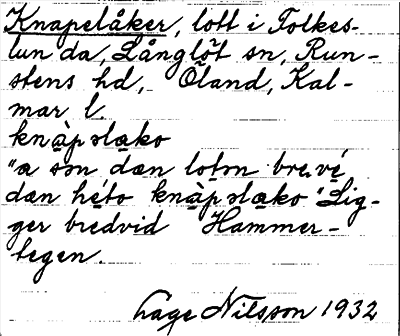 Knapelåker, lott i Folkes-
lunda, Långlöt sn, Run-
stens hd, Öland, Kal-
mar l.
knàpəlako
"a sòn dan lotən breve
dan héto knàpəlako" Lig-
ger bredvid Hammer-
tegen.
Lage Nilsson 1932